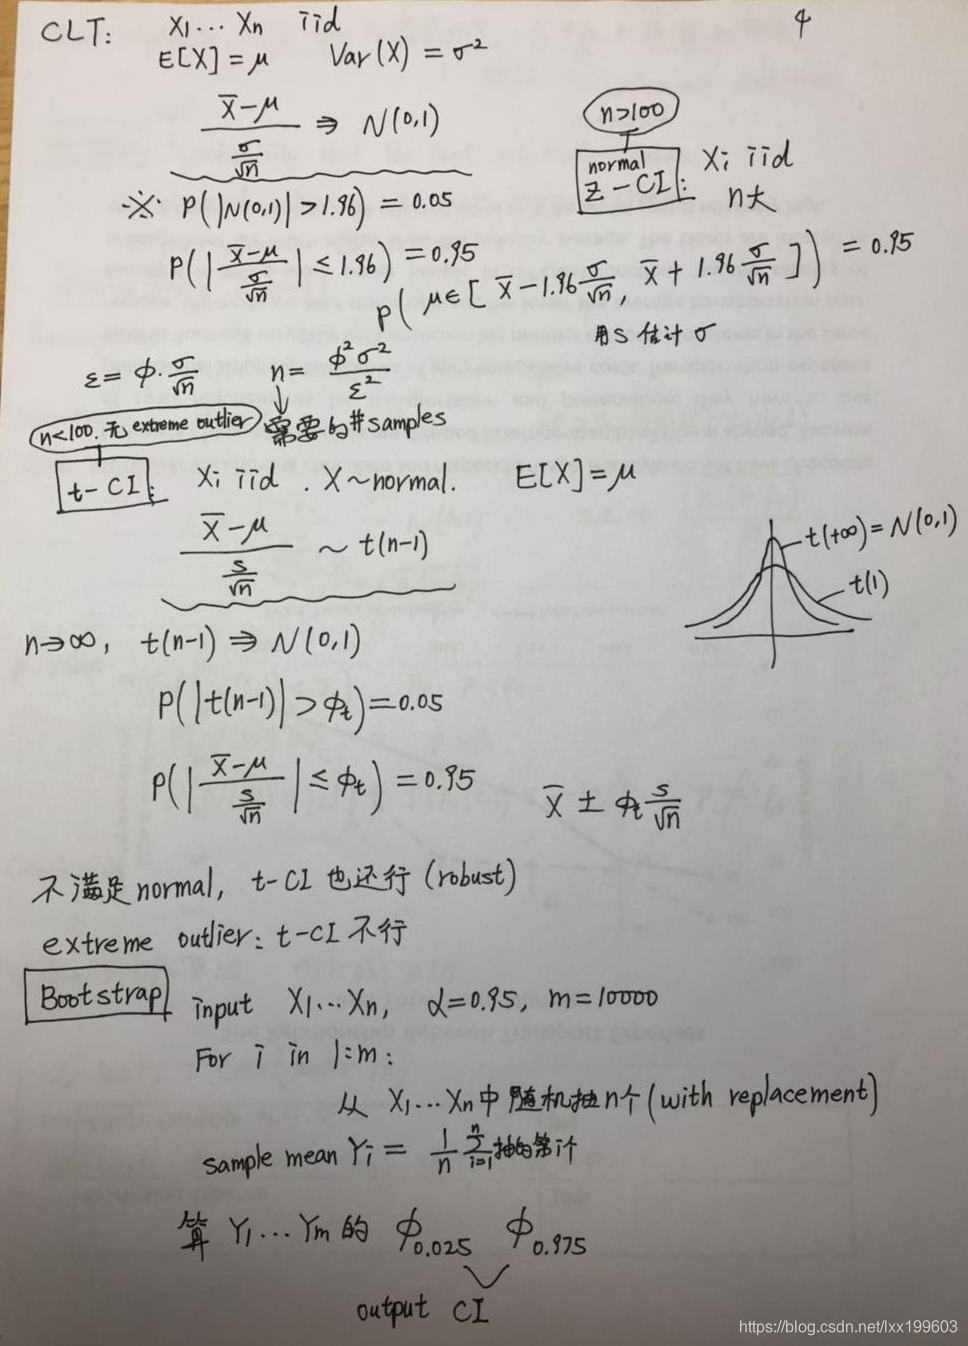 CLT: X₁···Xₙ iid 4
E[X]=μ Var(X)=σ²
(X̄-μ)/(σ/√n) ⇒ N(0,1)
n>100
normal
Z-CI: Xi iid
n大
※ P(|N(0,1)|>1.96)=0.05
P(|(X̄-μ)/(σ/√n)|≤1.96)=0.95
P(μ∈[X̄-1.96σ/√n, X̄+1.96σ/√n])=0.95
用S估计σ
ε=φ·σ/√n n=φ²σ²/ε²
需要的#samples
n<100. 无extreme outlier
t-CI: Xi iid. X~normal. E[X]=μ
(X̄-μ)/(s/√n) ~ t(n-1)
t(+∞)=N(0,1)
t(1)
n→∞, t(n-1)⇒N(0,1)
P(|t(n-1)|>φt)=0.05
P(|(X̄-μ)/(s/√n)|≤φt)=0.95
X̄ ± φt s/√n
不满足normal, t-CI也还行(robust)
extreme outlier: t-CI不行
Bootstrap input X₁···Xₙ, α=0.95, m=10000
For i in 1:m:
从 X₁···Xₙ中随机抽n个(with replacement)
sample mean Yi = 1/n Σⁿᵢ₌₁ 抽的第i个
算 Y₁···Yₘ的 φ0.025 φ0.975
output CI
https://blog.csdn.net/lxx199603